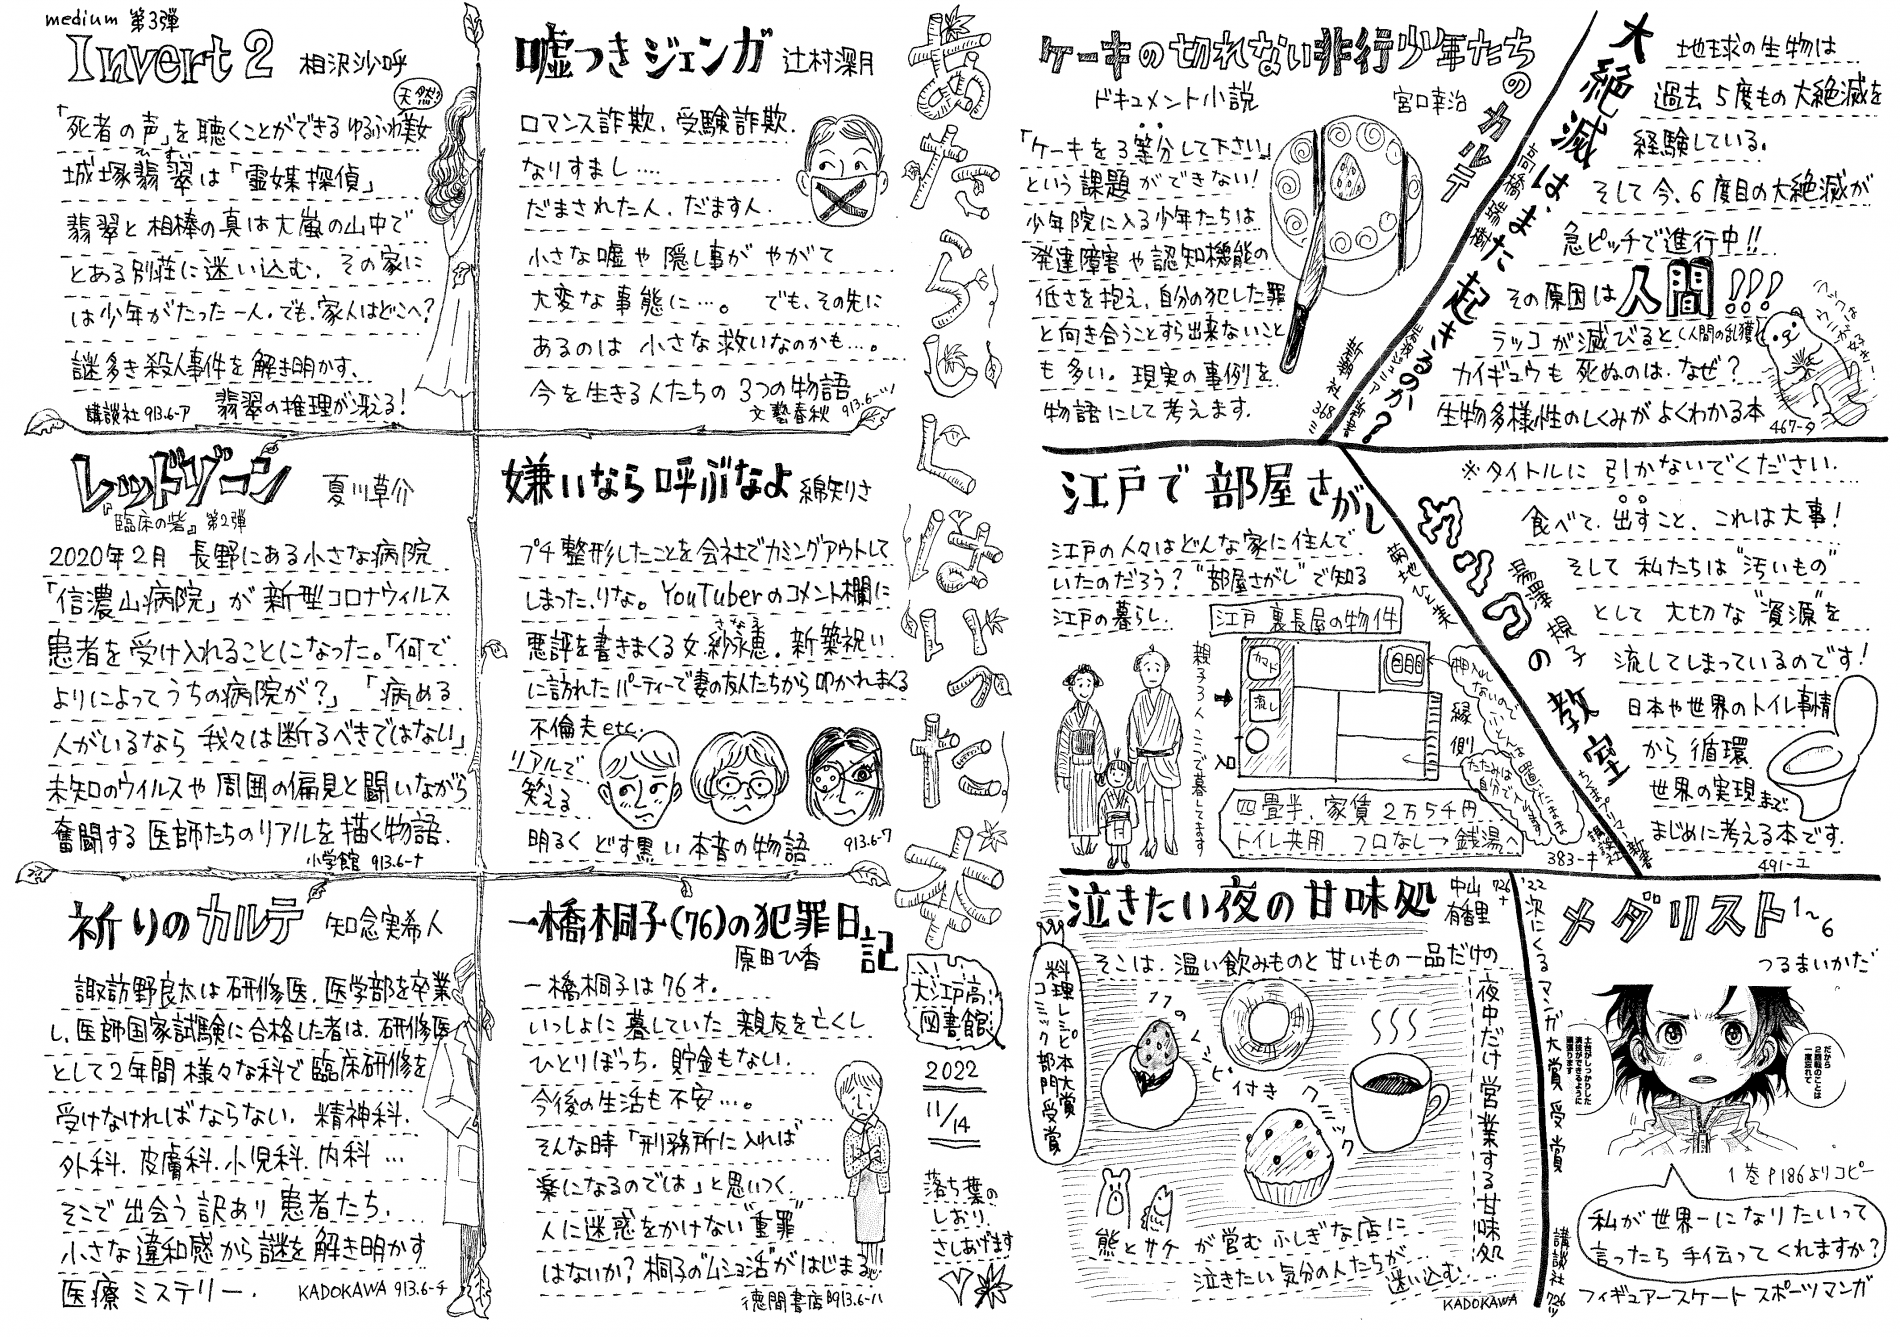 medium 第3弾
Invert 2 相沢沙呼
天然!?
「死者の声」を聴くことができるゆるふわ美女
城塚翡翠は「霊媒探偵」
ひすい
翡翠と相棒の真は大嵐の山中で
とある別荘に迷い込む。その家に
は少年がたった一人。でも、家人はどこへ?
謎多き殺人事件を解き明かす、
翡翠の推理が冴える!
講談社 913.6-ア
嘘つきジェンガ 辻村深月
ロマンス詐欺、受験詐欺、
なりすまし‥‥
だまされた人、だます人
小さな嘘や隠し事がやがて
大変な事態に…。でも、その先に
あるのは小さな救いなのかも…。
今を生きる人たちの3つの物語
文藝春秋 913.6-ツ
レッドゾーン 夏川草介
『臨床の砦』第2弾
2020年2月 長野にある小さな病院
「信濃山病院」が新型コロナウィルス
患者を受け入れることになった。「何で
よりによってうちの病院が?」「病める
人がいるなら我々は断るべきではない」
未知のウイルスや周囲の偏見と闘いながら
奮闘する医師たちのリアルを描く物語。
小学館 913.6-ナ
嫌いなら呼ぶなよ 綿矢りさ
プチ整形したことを会社でカミングアウトして
しまった、りな。YouTuberのコメント欄に
悪評を書きまくる女、紗永恵。新築祝い
さなえ
に訪れたパーティーで妻の友人たちから叩かれまくる
不倫夫etc.
リアルで
笑える
明るくどす黒い本音の物語
913.6-ワ
祈りのカルテ 知念実希人
諏訪野良太は研修医。医学部を卒業
し、医師国家試験に合格した者は、研修医
として2年間様々な科で臨床研修を
受けなければならない。精神科、
外科、皮膚科、小児科、内科…
そこで出会う訳あり患者たち。
小さな違和感から謎を解き明かす
医療ミステリー。
KADOKAWA 913.6-チ
一橋桐子(76)の犯罪日記
原田ひ香
一橋桐子は76才。
いっしょに暮していた親友を亡くし
ひとりぼっち。貯金もない。
今後の生活も不安…。
そんな時「刑務所に入れば
楽になるのでは」と思いつく
人に迷惑をかけない"重罪"
はないか?桐子の"ムショ活"がはじまる!
徳間書店 B913.6-ハ
あたらしくはいった本
大江戸高
図書館
2022
11/14
落ち葉の
しおり
さしあげます
ケーキの切れない非行少年たちのカルテ
ドキュメント小説 宮口幸治
「ケーキを3等分して下さい」
という課題ができない!
少年院に入る少年たちは
発達障害や認知機能の
低さを抱え、自分の犯した罪
と向き合うことすら出来ないこと
も多い。現実の事例を
物語にして考えます。
新潮社 新書
368-ミ
大絶滅は、また起きるのか?
高橋瑞樹
岩波ジュニア新書
地球の生物は
過去5度もの大絶滅を
経験している。
そして今、6度目の大絶滅が
急ピッチで進行中!!
その原因は人間!!!
ラッコが滅びると(人間の乱獲)
カイギュウも死ぬのは、なぜ?
生物多様性のしくみがよくわかる本
467-タ
ラッコは
ウニが好き…
江戸で部屋さがし
菊地ひと美
江戸の人々はどんな家に住んで
いたのだろう?"部屋さがし"で知る
江戸の暮らし。
江戸 裏長屋の物件
親子3人 ここで暮してます
入口
カマド
流し
縁側
押入れ
ないので
たたみは
自分で
四畳半、家賃2万5千円
トイレ共用 フロなし→銭湯へ
講談社
383-キ
※タイトルに引かないでください。
ウンコの教室
湯澤規子
ちくまプリマー新書
食べて、出すこと、これは大事!
そして私たちは"汚いもの"
として大切な"資源"を
流してしまっているのです!
日本や世界のトイレ事情
から循環
世界の実現まで
まじめに考える本です。
491-ユ
泣きたい夜の甘味処
中山有香里
726ナ
料理レシピ本大賞
コミック部門受賞
そこは、温い飲みものと甘いもの一品だけの
夜中だけ営業する甘味処
レシピ付き
コミック
熊とサケが営むふしぎな店に
泣きたい気分の人たちが
迷い込む。
KADOKAWA
'22次にくるマンガ大賞受賞
メダリスト1~6
つるまいかだ
だから
2回転のことは
一度忘れて
土台がしっかりした
演技ができるように
頑張ります
1巻P186よりコピー
私が世界一になりたいって
言ったら手伝ってくれますか?
フィギュアースケート スポーツマンガ
講談社 726ツ